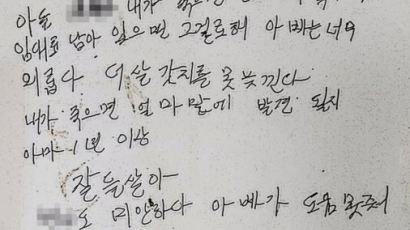 아들 내가 죽으면
임대료 남아 있으면 그걸로해 아빠는 너무
외롭다 더 살 갓치를 못 늣낀다
내가 죽으면 얼마 맡에 발견 될지
아마 1년 이상
잘들 살아
도 미안하다 아베가 도움 못줘